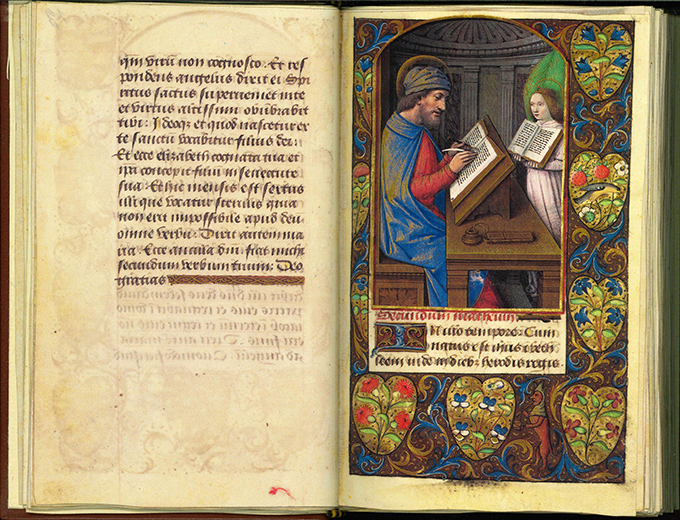 qm virū non cognosco. Et res
pondens angelus dixit ei Spi
ritus sactus superueniet in te
et virtus altissimi obūbrabit
tibi: Ideoq; et quod nascetur ex
te sanctū vocabitur filius dei:
Et ecce elizabeth cognata tua et
ipa concepit filiū in senectute
sua: Et hic mensis est sextus
illi que vocatur sterilis quia
non erit impossibile apud deū
omne verbū: Dixit autem ma
ria. Ecce ancilla dni fiat michi
secundum verbum tuum: Deo
gratias
Secundum matheum
In illo tempore: Cum
natus esset ihus ī beth
leem iude in dieb; herodis regis